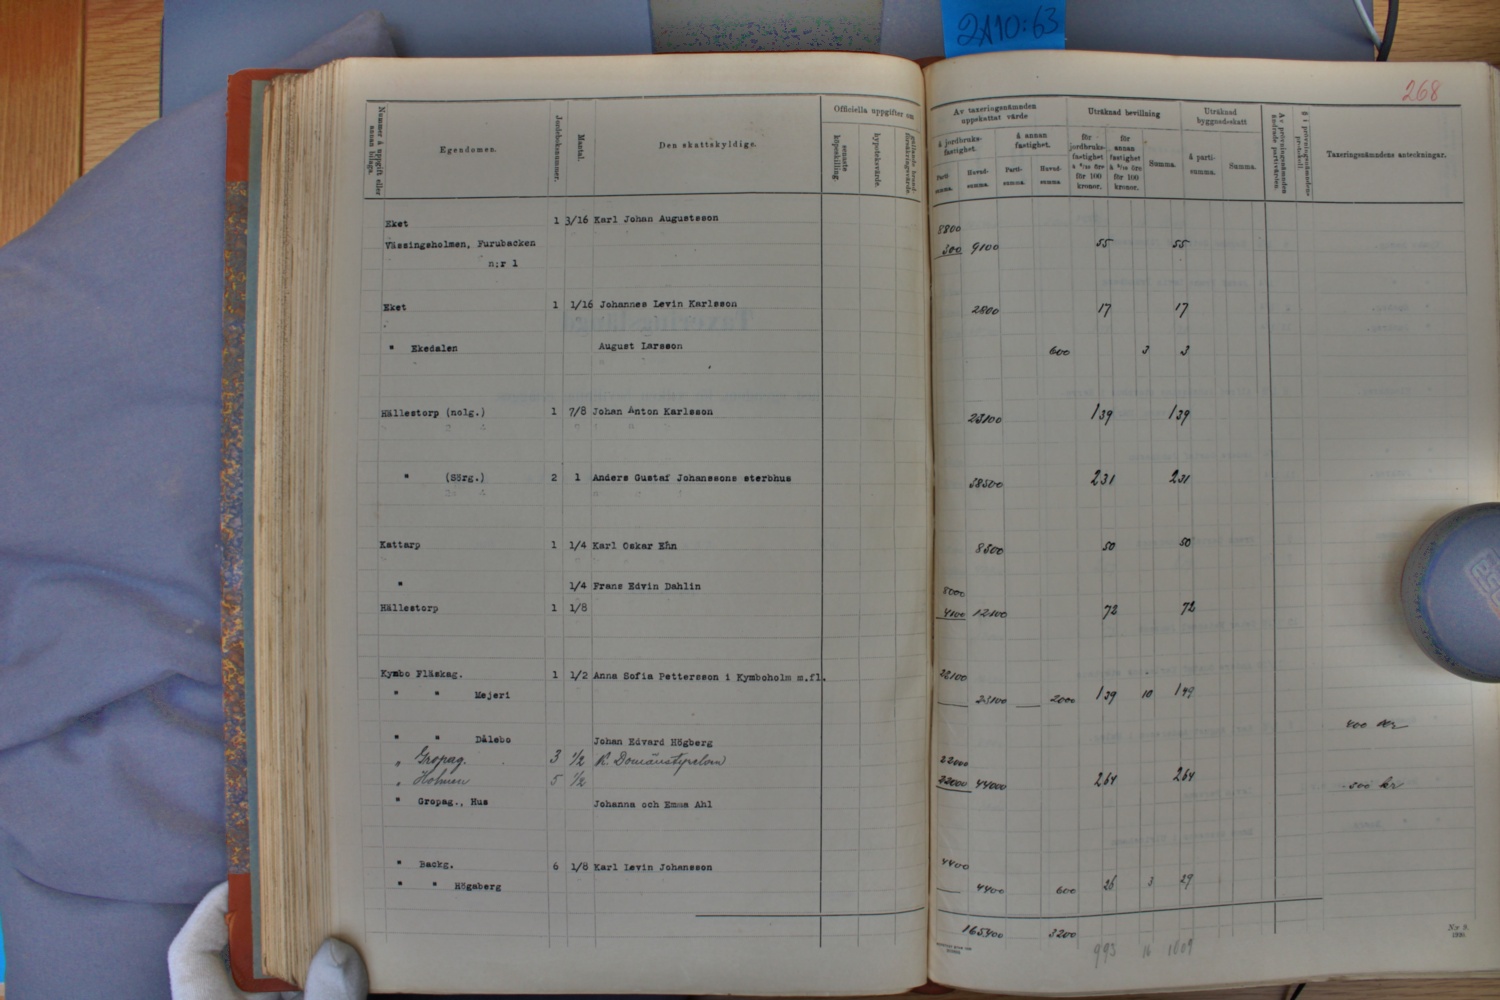 2A10:63
268
Nummer å uppgift eller annan bilaga.
Egendomen.
Jordeboksnummer.
Mantal.
Den skattskyldige.
Officiella uppgifter om
senaste köpeskilling.
hypoteksvärde.
gällande brandförsäkringsvärde.
Av taxeringsnämnden uppskattat värde
å jordbruksfastighet.
å annan fastighet.
Parti-summa.
Huvudsumma.
Parti-summa.
Huvudsumma.
Uträknad bevillning
för jordbruksfastighet
för 100 kronor.
för annan fastighet
för 100 kronor.
Summa.
Uträknad byggnadsskatt
å partisumma.
Summa.
Av prövningsnämnden ändrade partivärden.
§ i prövningsnämndens protokoll.
Taxeringsnämndens anteckningar.
Eket 1 3/16 Karl Johan Augustsson 8800
Vässingsholmen, Furubacken 300 9100 55 55
n:r 1
Eket 1 1/16 Johannes Levin Karlsson 2800 17 17
" Ekedalen August Larsson 600 3 3
Hällestorp (nolg.) 1 7/8 Johan Anton Karlsson 23100 139 139
" (Sörg.) 2 1 Anders Gustaf Johanssons sterbhus 38500 231 231
Kattarp 1 1/4 Karl Oskar Ehn 8500 50 50
" 1/4 Frans Edvin Dahlin 8000
Hällestorp 1 1/8 4100 12100 72 72
Kymbo Fläskag. 1 1/2 Anna Sofia Pettersson i Kymboholm m.fl.
" " Mejeri 23100 2000 139 10 149
400 kr
" " Dålebo Johan Edvard Högberg
" Gropag. 3 1/2 K. Domänstyrelsen 22000
" Holmen 5 1/2 22000 44000 264 264 500 kr
" Gropag., Hus Johanna och Emma Ahl
" Backg. 6 1/8 Karl Levin Johansson 4400
" " Högaberg 4400 600 26 3 29
165400 3200
993 16 1009
Nr 9.